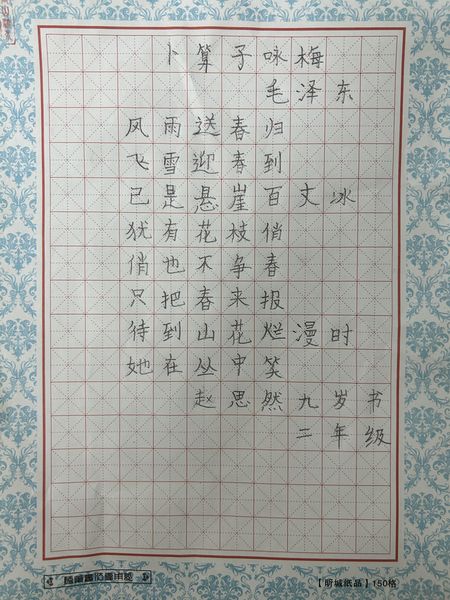 卜算子咏梅
毛泽东
风雨送春归
飞雪迎春到
已是悬崖百丈冰
犹有花枝俏
俏也不争春
只把春来报
待到山花烂漫时
她在丛中笑
赵思然九岁书
三年级
【昕城纸品】150格